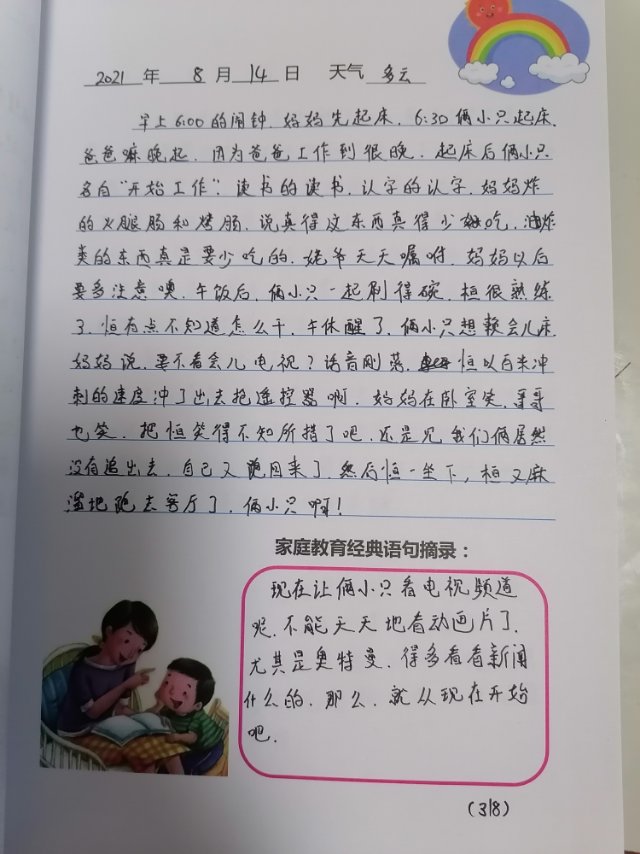 2021 年 8 月 14 日 天气 多云
早上6:00的闹钟.妈妈先起床.6:30俩小只起床.
爸爸嘛晚起.因为爸爸工作到很晚.起床后俩小只
各自"开始工作".读书的读书.认字的认字.妈妈炸
的火腿肠和烤肠.说真得这东西真得少吃.油炸
类的东西真是要少吃的.姥爷天天嘱咐.妈妈以后
要多注意噢.午饭后.俩小只一起刷得碗.桓很熟练
了.恒有点不知道怎么干.午休醒了.俩小只想赖会儿床.
妈妈说.要不看会儿电视?话音刚落.恒以百米冲
刺的速度冲了出去抢遥控器啊.妈妈在卧室笑.哥哥
也笑.把恒笑得不知所措了吧.还是见我们俩居然
没有追出去.自己又跑回来了.然后恒一坐下,桓又麻
溜地跑去客厅了.俩小只啊!
家庭教育经典语句摘录：
现在让俩小只看电视频道
呢.不能天天地看动画片了.
尤其是奥特曼.得多看看新闻
什么的.那么.就从现在开始
吧.
(318)